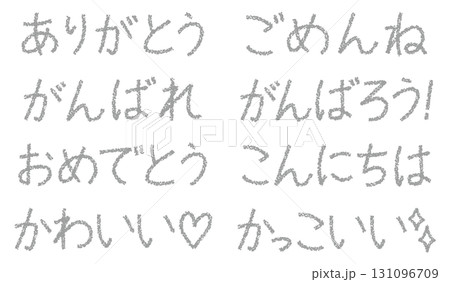 ありがとう ごめんね
がんばれ がんばろう!
おめでとう こんにちは
かわいい♡ かっこいい✧
PIXTA
pixta.jp - 131096709